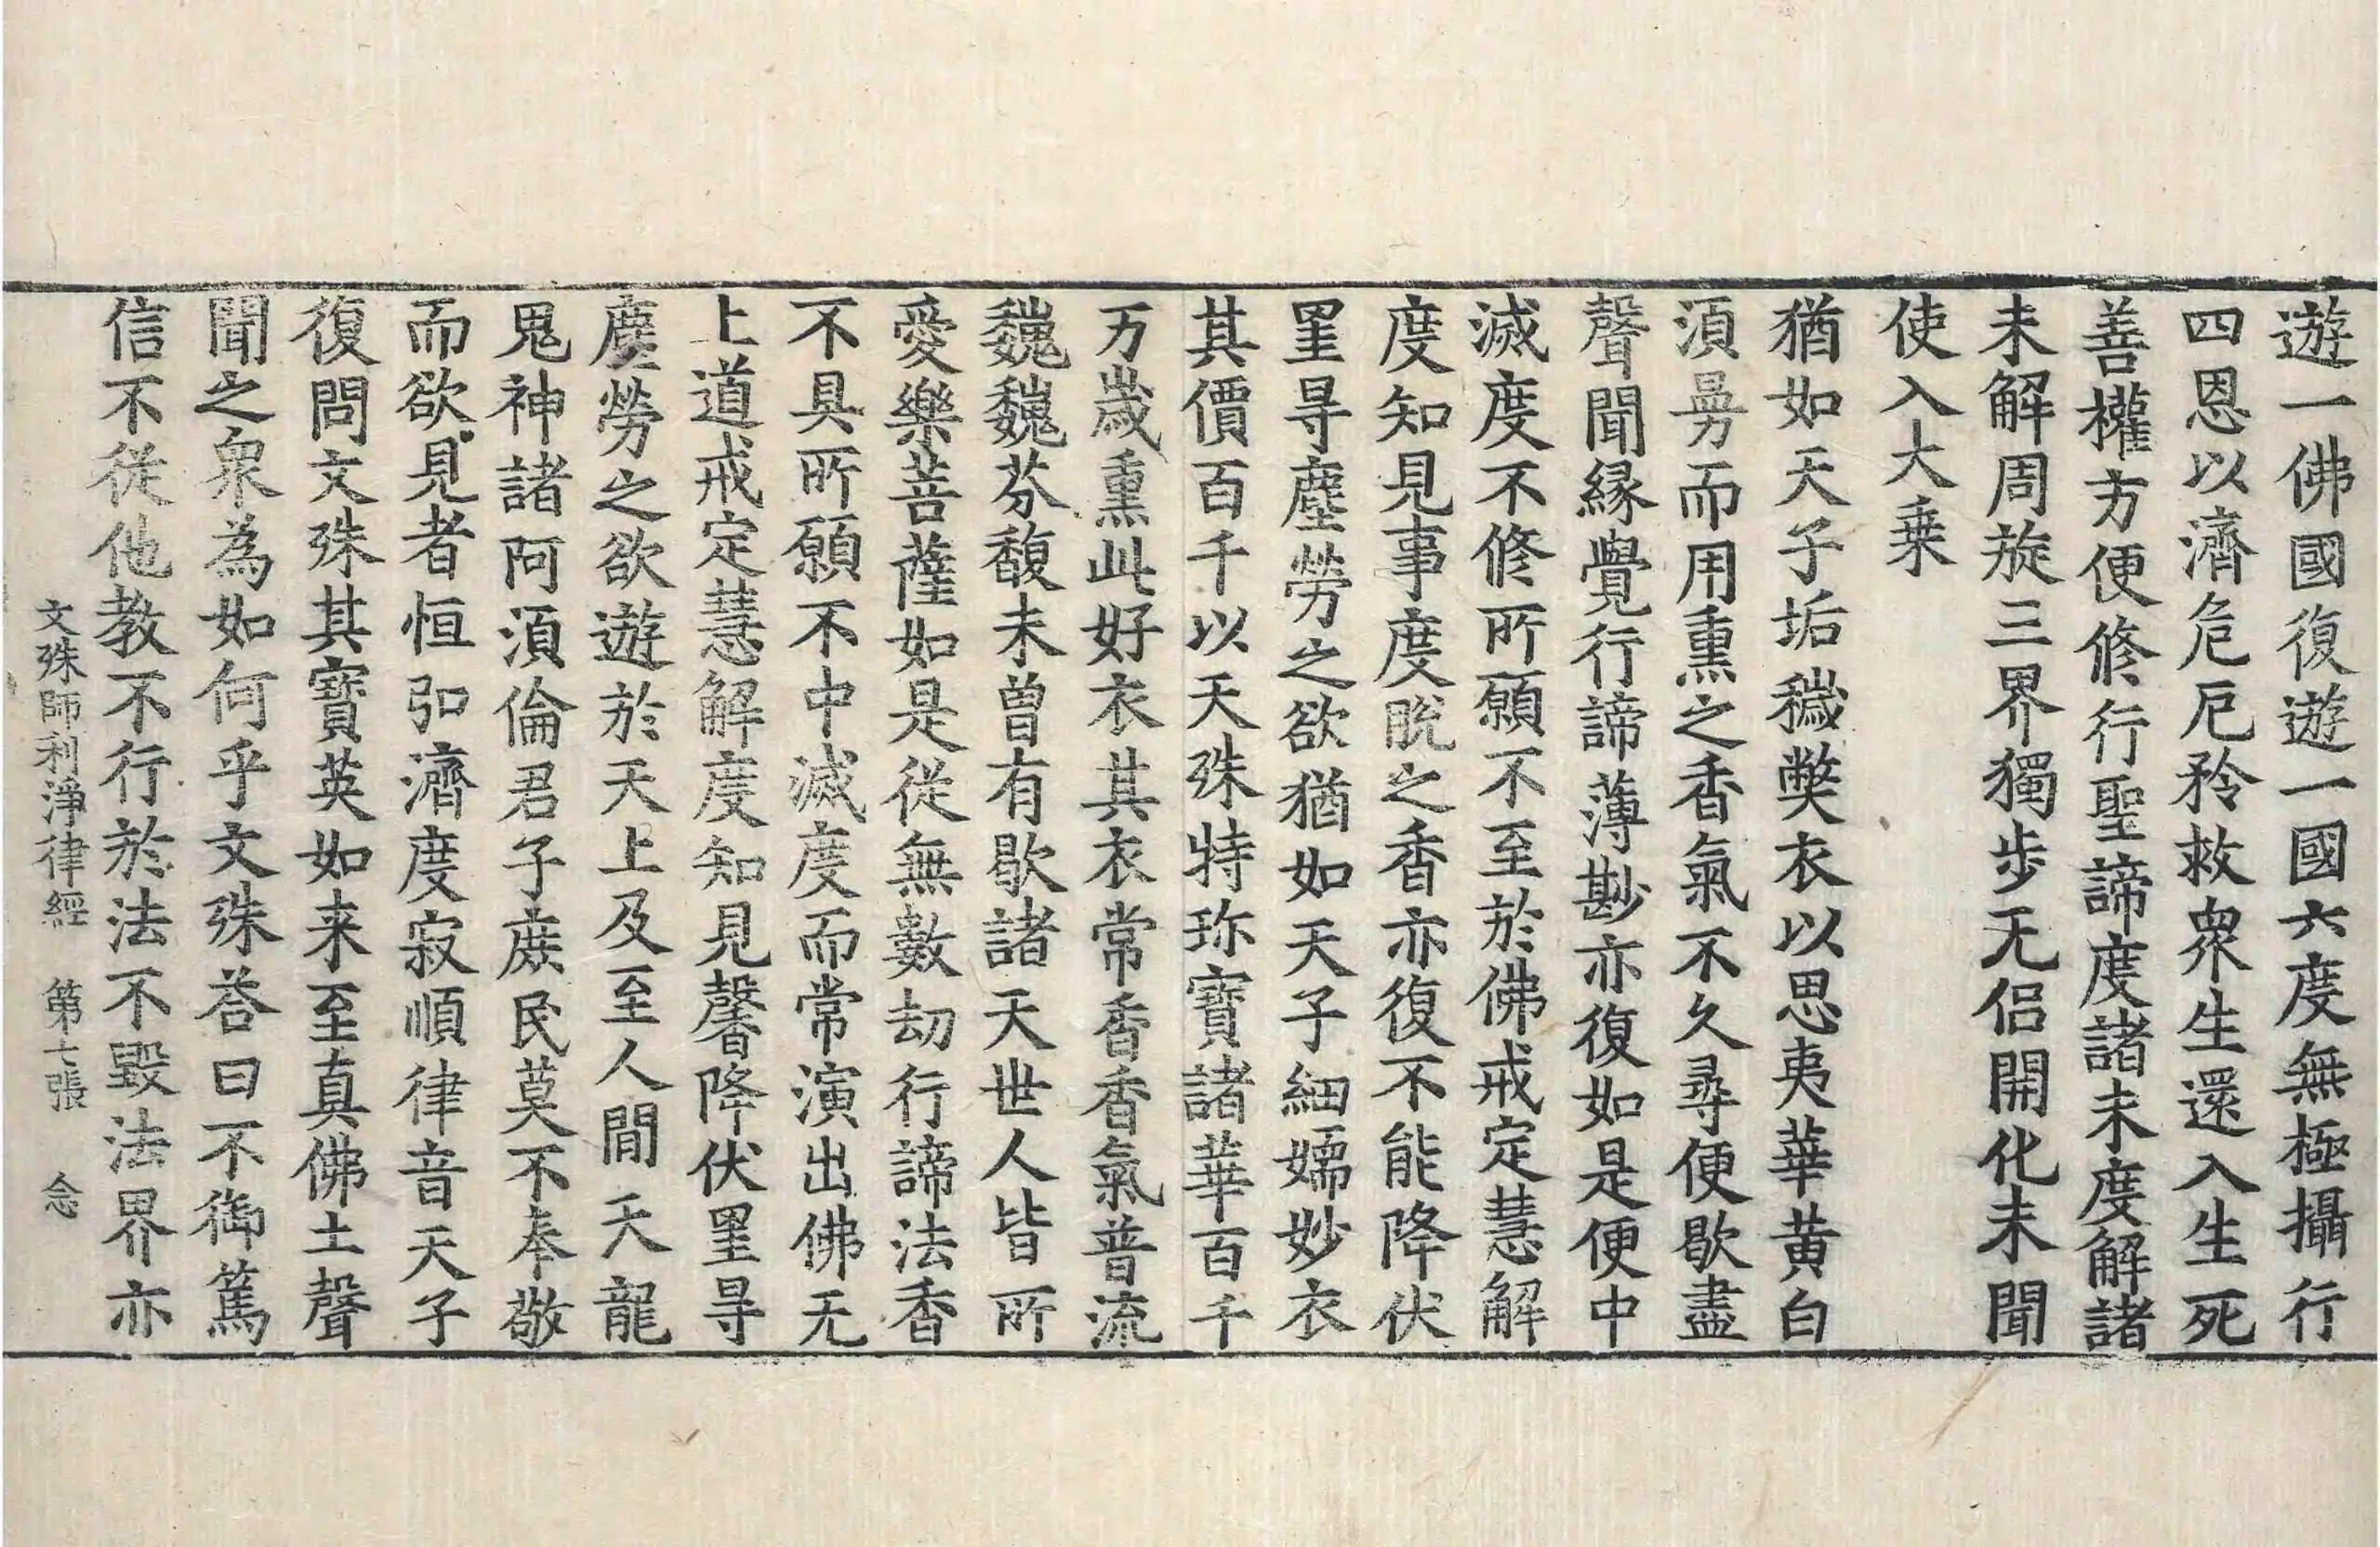 遊一佛國復遊一國六度無極攝行
四恩以濟危厄矜救衆生還入生死
善權方便修行聖諦度諸未度解諸
未解周旋三界獨步无侣開化未聞
使入大乗
猶如天子垢穢弊衣以思夷華黄白
湏㬰而用熏之香氣不久尋便歇盡
聲聞緣覺行諦薄尠亦復如是便中
滅度不修所願不至於佛戒定慧解
度知見事度脫之香亦復不能降伏
罣㝵塵勞之欲猶如天子細嬬妙衣
其價百千以天殊特珎寶諸華百千
万歲熏此好衣其衣常香香氣普流
巍巍芬馥未曽有歇諸天世人皆所
愛樂菩薩如是從無數劫行諦法香
不具所願不中滅度而常演出佛无
上道戒定慧解度知見馨降伏罣㝵
塵勞之欲遊於天上及至人間天龍
鬼神諸阿湏倫君子庶民莫不奉敬
而欲見者恒弘濟度寂順律音天子
復問文殊其寶英如来至真佛土聲
聞之衆為如何乎文殊荅曰不御篤
信不從他教不行於法不毀法界亦
文殊師利淨律經 第七張 念